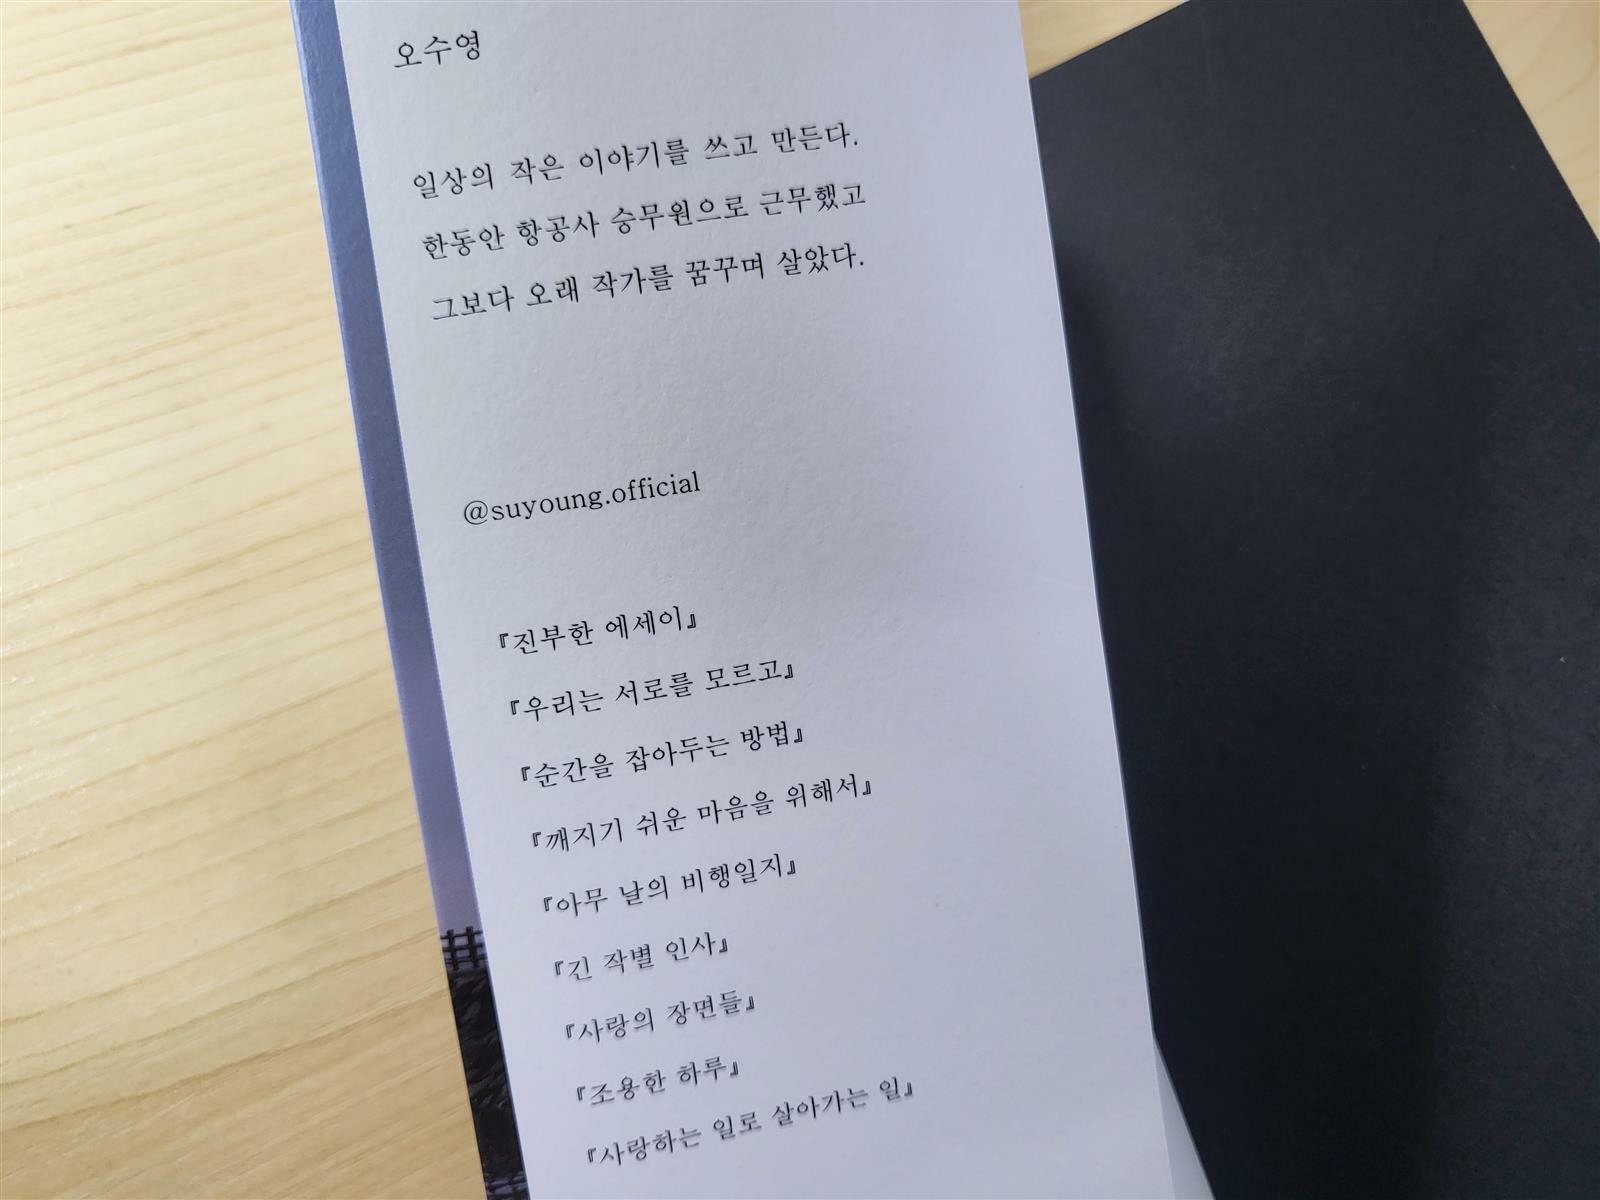 오수영
일상의 작은 이야기를 쓰고 만든다.
한동안 항공사 승무원으로 근무했고
그보다 오래 작가를 꿈꾸며 살았다.
@suyoung.official
『진부한 에세이』
『우리는 서로를 모르고』
『순간을 잡아두는 방법』
『깨지기 쉬운 마음을 위해서』
『아무 날의 비행일지』
『긴 작별 인사』
『사랑의 장면들』
『조용한 하루』
『사랑하는 일로 살아가는 일』